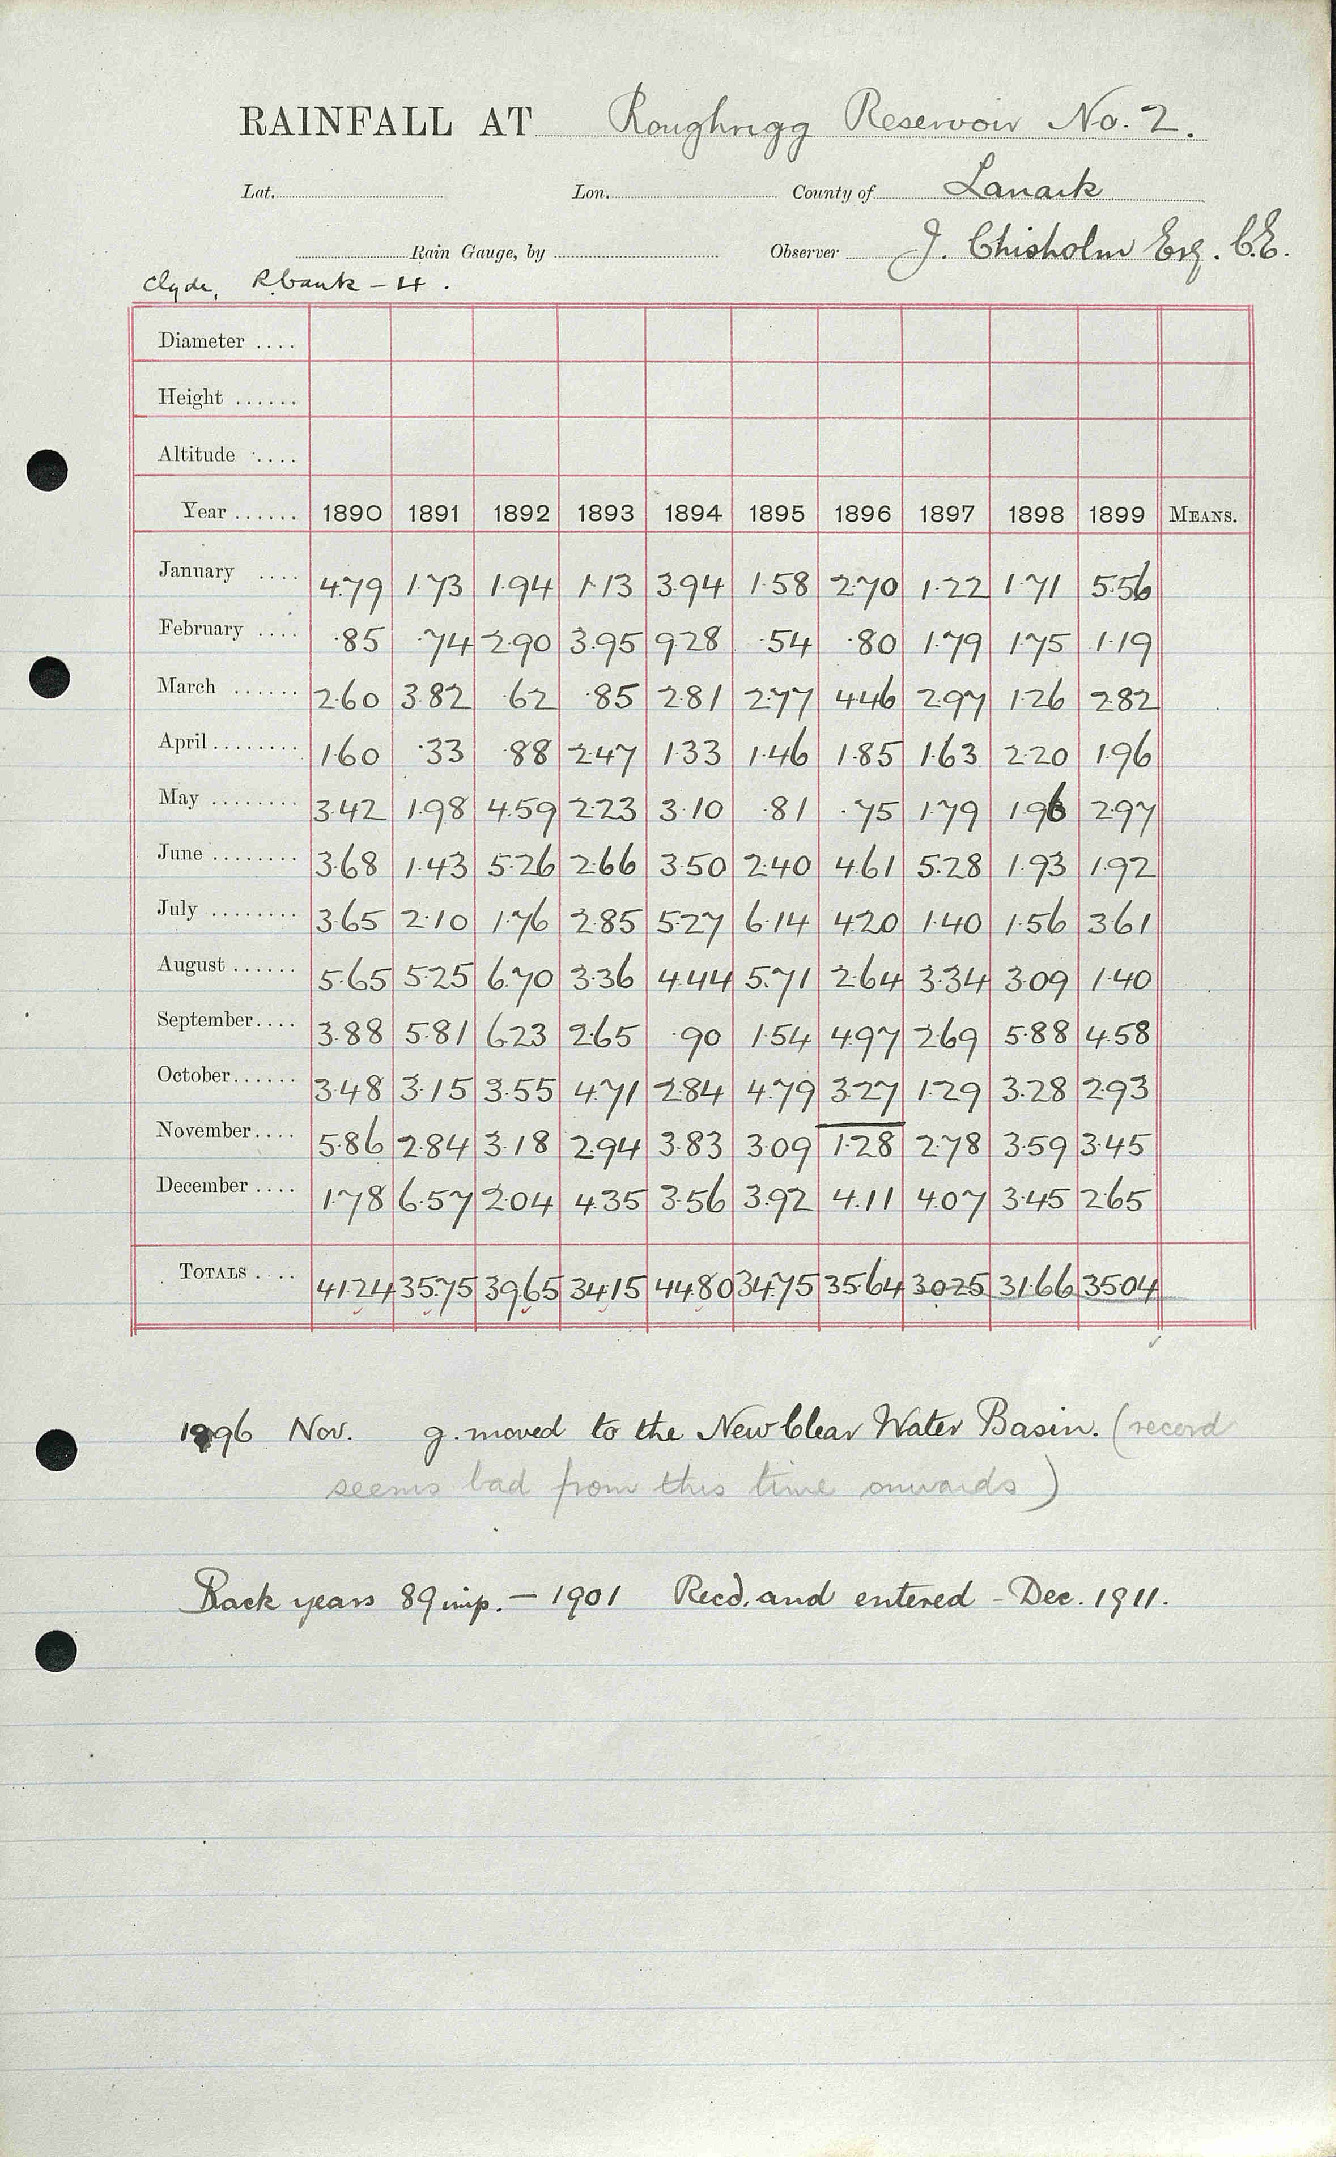 RAINFALL AT Roughrigg Reservoir No. 2.
Lat. Lon. County of Lanark
Rain Gauge, by Observer J. Chisholm Esq. C.E.
Clyde, R. bank - 4.
Diameter ....
Height ......
Altitude ....
Year ...... 1890 1891 1892 1893 1894 1895 1896 1897 1898 1899 MEANS.
January .... 4.79 1.73 1.94 1.13 3.94 1.58 2.70 1.22 1.71 5.56
February .... .85 .74 2.90 3.95 9.28 .54 .80 1.79 1.75 1.19
March ...... 2.60 3.82 .62 .85 2.81 2.77 4.46 2.97 1.26 2.82
April ........ 1.60 .33 .88 2.47 1.33 1.46 1.85 1.63 2.20 1.96
May ........ 3.42 1.98 4.59 2.23 3.10 .81 .75 1.79 1.96 2.97
June ........ 3.68 1.43 5.26 2.66 3.50 2.40 4.61 5.28 1.93 1.92
July ........ 3.65 2.10 1.76 2.85 5.27 6.14 4.20 1.40 1.56 3.61
August ...... 5.65 5.25 6.70 3.36 4.44 5.71 2.64 3.34 3.09 1.40
September .... 3.88 5.81 6.23 2.65 .90 1.54 4.97 2.69 5.88 4.58
October ...... 3.48 3.15 3.55 4.71 2.84 4.79 3.27 1.29 3.28 2.93
November .... 5.86 2.84 3.18 2.94 3.83 3.09 1.28 2.78 3.59 3.45
December .... 1.78 6.57 2.04 4.35 3.56 3.92 4.11 4.07 3.45 2.65
TOTALS .... 41.24 35.75 39.65 34.15 44.80 34.75 35.64 30.25 31.66 35.04
1896 Nov. g. moved to the New Clear Water Basin. (record
seems bad from this time onwards)
Back years 89 imp. — 1901 Recd. and entered - Dec. 1911.